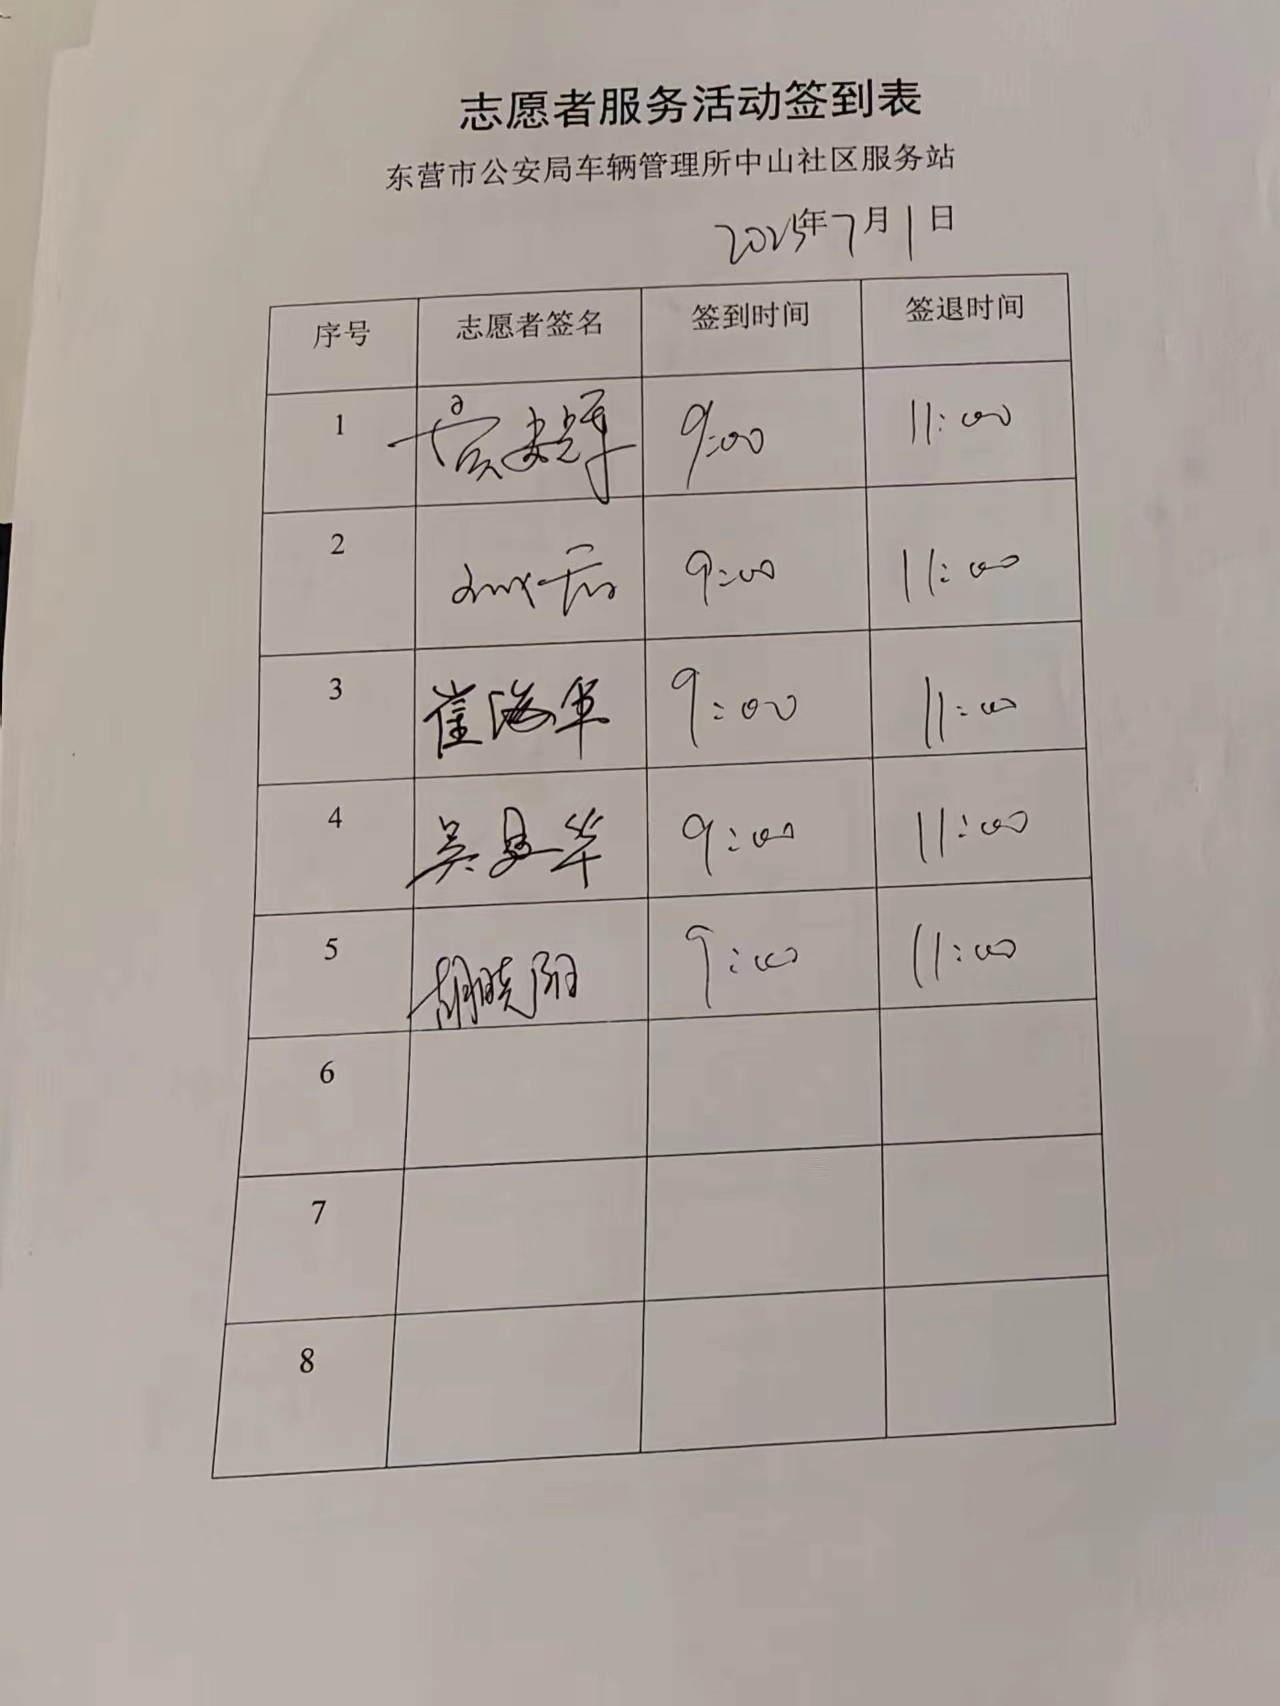 志愿者服务活动签到表
东营市公安局车辆管理所中山社区服务站
2025年7月1日
序号 志愿者签名 签到时间 签退时间
1 9:00 11:00
2 9:00 11:00
3 崔海军 9:00 11:00
4 吴 华 9:00 11:00
5 胡晓阳 9:00 11:00
6
7
8